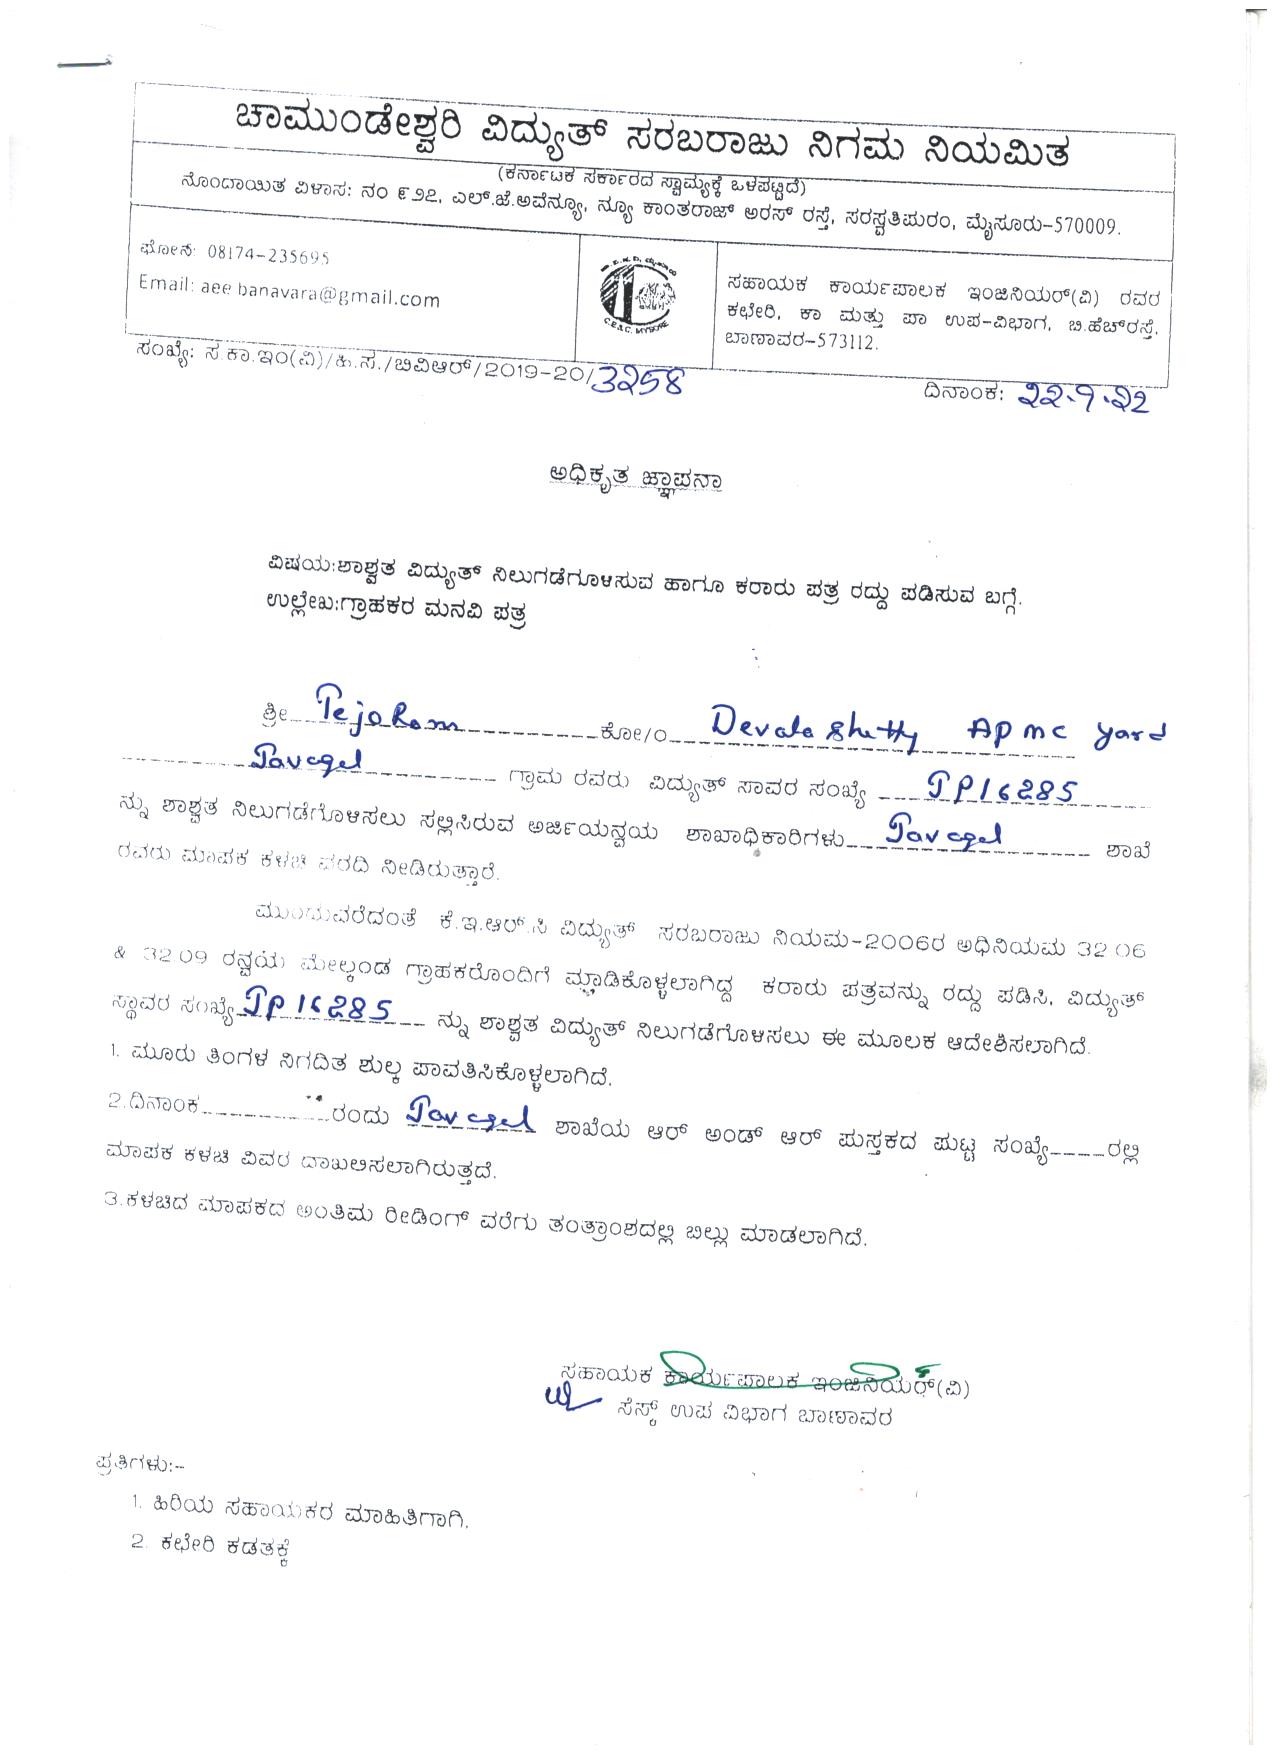 ಚಾಮುಂಡೇಶ್ವರಿ ವಿದ್ಯುತ್ ಸರಬರಾಜು ನಿಗಮ ನಿಯಮಿತ
(ಕರ್ನಾಟಕ ಸರ್ಕಾರದ ಸ್ವಾಮ್ಯಕ್ಕೆ ಒಳಪಟ್ಟಿದೆ)
ನೊಂದಾಯಿತ ವಿಳಾಸ: ನಂ ೯೨೭, ಎಲ್.ಜೆ.ಅವೆನ್ಯೂ, ನ್ಯೂ ಕಾಂತರಾಜ್ ಅರಸ್ ರಸ್ತೆ, ಸರಸ್ವತಿಪುರಂ, ಮೈಸೂರು-570009.
ಫೋನ್: 08174-235695
Email: aee.banavara@gmail.com
C.E.S.C. MYSORE
ಸಹಾಯಕ ಕಾರ್ಯಪಾಲಕ ಇಂಜಿನಿಯರ್(ವಿ) ರವರ
ಕಛೇರಿ, ಕಾ ಮತ್ತು ಪಾ ಉಪ-ವಿಭಾಗ, ಬಿ.ಹೆಚ್‌ರಸ್ತೆ,
ಬಾಣಾವರ-573112.
ಸಂಖ್ಯೆ: ಸ.ಕಾ.ಇಂ(ವಿ)/ಹಿ.ಸ./ಬಿವಿಆರ್/2019-20/3258
ದಿನಾಂಕ: 22.9.22
ಅಧಿಕೃತ ಜ್ಞಾಪನಾ
ವಿಷಯ:ಶಾಶ್ವತ ವಿದ್ಯುತ್ ನಿಲುಗಡೆಗೊಳಿಸುವ ಹಾಗೂ ಕರಾರು ಪತ್ರ ರದ್ದು ಪಡಿಸುವ ಬಗ್ಗೆ.
ಉಲ್ಲೇಖ:ಗ್ರಾಹಕರ ಮನವಿ ಪತ್ರ
ಶ್ರೀ TejoRam ಕೋ/ಂ Devala Shetty APMC Yard
Javagal ಗ್ರಾಮ ರವರು ವಿದ್ಯುತ್ ಸಾವರ ಸಂಖ್ಯೆ JP16285
ನ್ನು ಶಾಶ್ವತ ನಿಲುಗಡೆಗೊಳಿಸಲು ಸಲ್ಲಿಸಿರುವ ಅರ್ಜಿಯನ್ವಯ ಶಾಖಾಧಿಕಾರಿಗಳು Javagal ಶಾಖೆ
ರವರು ಮಾಪಕ ಕಳಚಿ ವರದಿ ನೀಡಿರುತ್ತಾರೆ.
ಮುಂದುವರೆದಂತೆ ಕೆ.ಇ.ಆರ್.ಸಿ ವಿದ್ಯುತ್ ಸರಬರಾಜು ನಿಯಮ-2006ರ ಅಧಿನಿಯಮ 32.06
& 32.09 ರನ್ವಯ ಮೇಲ್ಕಂಡ ಗ್ರಾಹಕರೊಂದಿಗೆ ಮ್ಹಾಡಿಕೊಳ್ಳಲಾಗಿದ್ದ ಕರಾರು ಪತ್ರವನ್ನು ರದ್ದು ಪಡಿಸಿ, ವಿದ್ಯುತ್
ಸ್ಥಾವರ ಸಂಖ್ಯೆ JP16285 ನ್ನು ಶಾಶ್ವತ ವಿದ್ಯುತ್ ನಿಲುಗಡೆಗೊಳಿಸಲು ಈ ಮೂಲಕ ಆದೇಶಿಸಲಾಗಿದೆ.
1. ಮೂರು ತಿಂಗಳ ನಿಗದಿತ ಶುಲ್ಕ ಪಾವತಿಸಿಕೊಳ್ಳಲಾಗಿದೆ.
2.ದಿನಾಂಕ__________ರಂದು Javagal ಶಾಖೆಯ ಆರ್ ಅಂಡ್ ಆರ್ ಪುಸ್ತಕದ ಪುಟ್ಟ ಸಂಖ್ಯೆ____ರಲ್ಲಿ
ಮಾಪಕ ಕಳಚಿ ವಿವರ ದಾಖಲಿಸಲಾಗಿರುತ್ತದೆ.
3.ಕಳಚಿದ ಮಾಪಕದ ಅಂತಿಮ ರೀಡಿಂಗ್ ವರೆಗು ತಂತ್ರಾಂಶದಲ್ಲಿ ಬಿಲ್ಲು ಮಾಡಲಾಗಿದೆ.
ಸಹಾಯಕ ಕಾರ್ಯಪಾಲಕ ಇಂಜಿನಿಯರ್(ವಿ)
ಸೆಸ್ಕ್ ಉಪ ವಿಭಾಗ ಬಾಣಾವರ
ಪ್ರತಿಗಳು:-
1. ಹಿರಿಯ ಸಹಾಯಕರ ಮಾಹಿತಿಗಾಗಿ.
2. ಕಛೇರಿ ಕಡತಕ್ಕೆ